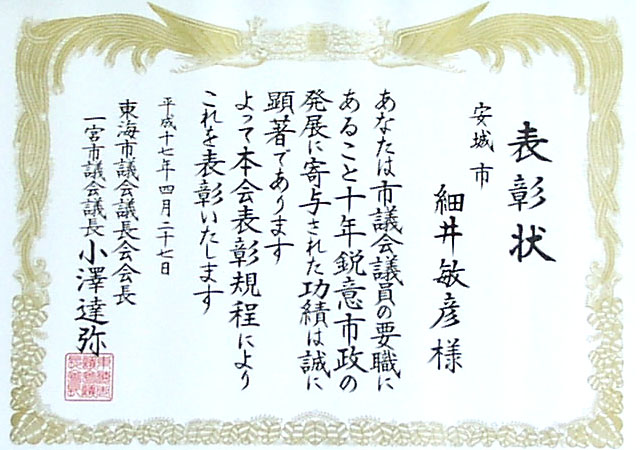 表彰状
安城市
細井敏彦様
あなたは市議会議員の要職に
あること十年鋭意市政の
発展に寄与された功績は誠に
顕著であります
よって本会表彰規程により
これを表彰いたします
平成十七年四月二十七日
東海市議会議長会会長
一宮市議会議長 小澤達弥